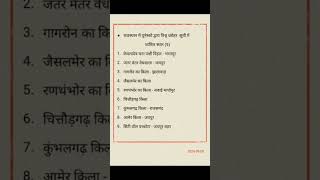 राजस्थान में यूनेस्को द्वारा विश्व धरोहर सूची में
शामिल स्थल (9)
1. केवलादेव घना पक्षी विहार - भरतपुर
2. जंतर मंतर वेधशाला - जयपुर
3. गागरोन का किला - झालावाड़
4. जैसलमेर का किला
5. रणथंभोर का किला - सवाई माधोपुर
6. चित्तौड़गढ़ किला
7. कुंभलगढ़ किला - राजसमंद
8. आमेर किला - जयपुर
9. जयपुर शहर
2. जंतर मंतर वेधश
3. गागरोन का कि
4. जैसलमेर का कि
5. रणथंभोर का कि
6. चित्तौड़गढ़ किल
7. कुंभलगढ़ किल
8. आमेर किला -